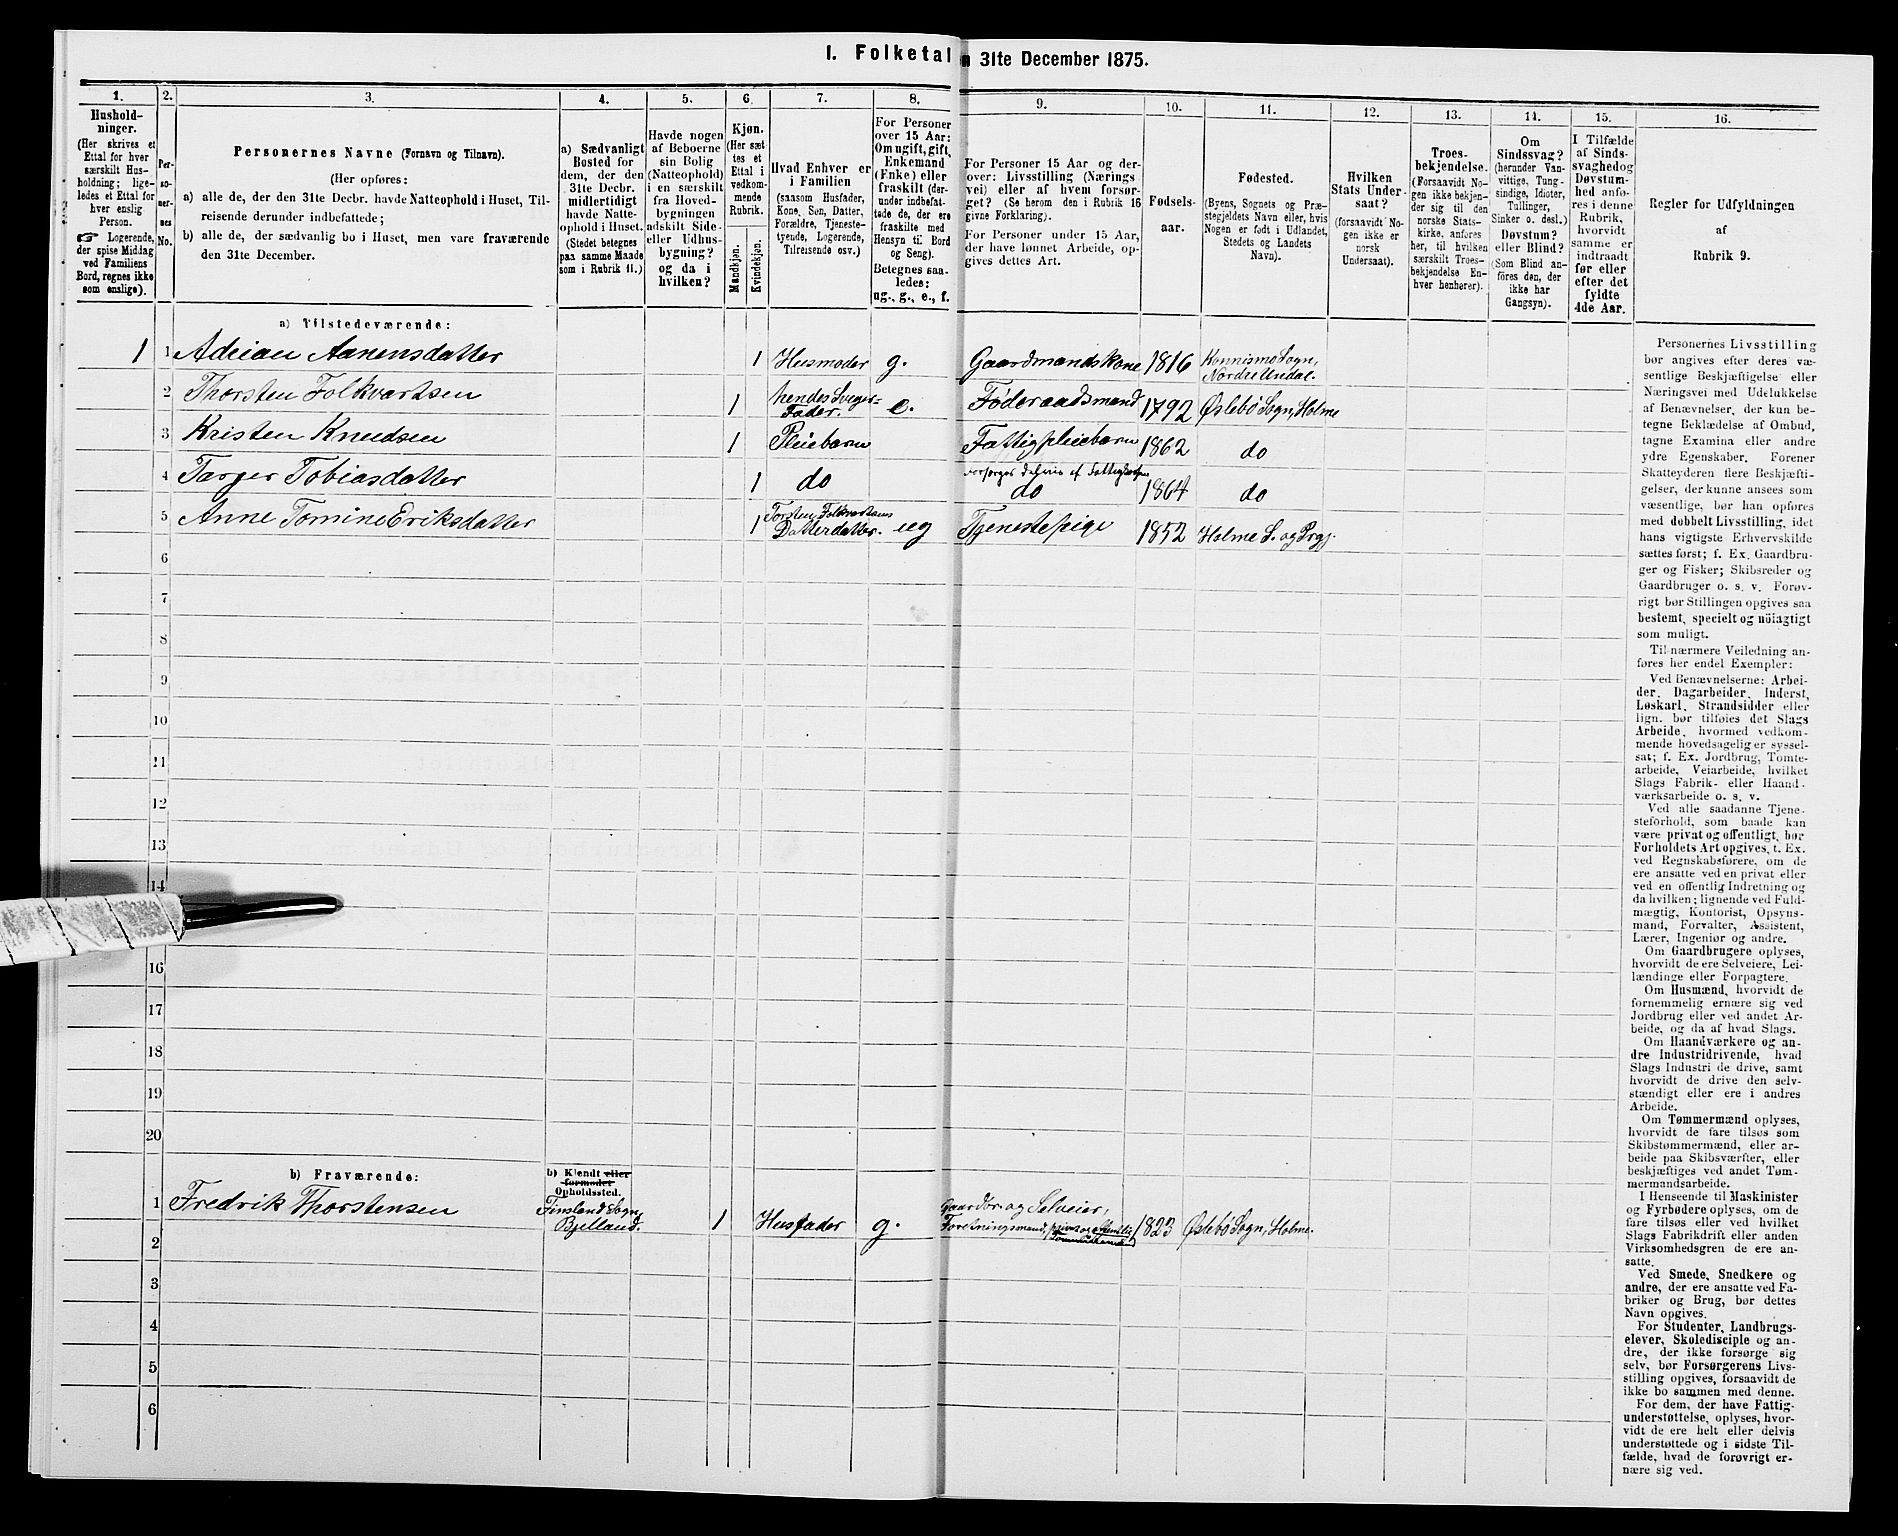 I. Folketal
31te December 1875.
1.
Hushold-
ninger.
(Her skrives et
Ettal for hver
særskilt Hus-
holdning; lige-
ledes et Ettal for
hver enslig
Person.
☞ Logerende,
der spise Middag
ved Familiens
Bord, regnes ikke
som enslige).
2.
Per-
so-
ner-
nes
No.
3.
Personernes Navne (Fornavn og Tilnavn).
(Her opføres:
a) alle de, der den 31te Decbr. havde Natteophold i Huset, Til-
reisende derunder indbefattede;
b) alle de, der sædvanlig bo i Huset, men vare fraværende
den 31te December.
4.
a) Sædvanligt
Bosted for
dem, der den
31te Decbr.
midlertidigt
havde Natte-
ophold i Huset.
(Stedet betegnes
paa samme Maade
som i Rubrik 11.)
5.
Havde nogen
af Beboerne
sin Bolig
(Natteophold)
i en særskilt
fra Hoved-
bygningen
adskilt Side-
eller Udhus-
bygning?
og da i
hvilken?
6.
Kjøn.
(Her sæt-
tes et
Ettal i
vedkom-
mende
Rubrik.
Mandkjøn.
Kvindekjøn.
7.
Hvad Enhver er
i Familien
(saasom Husfader,
Kone, Søn, Datter,
Forældre, Tjeneste-
tyende, Logerende,
Tilreisende osv.)
8.
For Personer
over 15 Aar:
Om ugift, gift,
Enkemand
(Enke) eller
fraskilt (der-
under indbefat-
tede de, der ere
fraskilte med
Hensyn til Bord
og Seng).
Betegnes saa-
ledes:
ug., g., e., f.
9.
For Personer 15 Aar og der-
over: Livsstilling (Nærings
vei) eller af hvem forsør-
get? (Se herom den i Rubrik 16
givne Forklaring).
For Personer under 15 Aar,
der have lønnet Arbeide, op-
gives dettes Art.
10.
Fødsels-
aar.
11.
Fødested.
(Byens, Sognets og Præ-
stegjeldets Navn eller, hvis
Nogen er født i Udlandet,
Stedets og Landets
Navn).
12.
Hvilken
Stats Under-
saat?
(forsaavidt No-
gen ikke er
norsk
Undersaat).
13.
Troes-
bekjendelse.
(Forsaavidt No-
gen ikke bekjen-
der sig til den
norske Stats-
kirke, anføres
her, til hvilken
særskilt Troes-
bekjendelse En-
hver henhører).
14.
Om
Sindssvag?
(herunder Van-
vittige, Tung-
sindige, Idioter,
Tullinger,
Sinker o. desl.)
Døvstum?
eller Blind?
(Som Blind an-
føres den, der
ikke har
Gangsyn).
15.
I Tilfælde
af Sinds-
svaghed og
Døvstum-
hed anfø-
res i denne
Rubrik,
hvorvidt
samme er
indtraadt
før eller
efter det
fyldte
4de Aar.
16.
Regler for Udfyldningen
af
Rubrik 9.
a) Tilstedeværende:
1 1 Adrian Aanensdatter 1 Husmoder g. Gaardmandskone 1816 Konnismo Sogn,
Nordre Undal.
2 Thorsten Folkvartsen 1 hendes Sviger-
Fader. e. Føderaadsmand 1792 Øslebö Sogn, Holme
3 Kristen Knudsen 1 Pleiebarn Fattigpleiebarn 1862 do
forsørges delvis af Fattigkassen
4 Targer Tobiasdatter 1 do do 1864 do
5 Anne Tomine Eriksdatter 1 Torsten Folkvartsens
Datterdatter. ug Tjenestepige 1852 Holme S. og Prgj.
6
7
8
9
10
11
12
13
14
16
17
18
19
20
b) Fraværende:
b) Kjendt eller
formodet
Opholdssted.
1 Fredrik Thorstensen Finsland Sogn,
Bjelland. 1 Husfader g. Gaardbr. og Selveier,
Forretningsmand, privat og offentlig 1823 Øslebö Sogn, Holme.
2
3
4
5
6
Personernes Livsstilling
bør angives efter deres væ-
sentlige Beskjæftigelse eller
Næringsvei med Udelukkelse
af Benævnelser, der kun be-
tegne Beklædelse af Ombud,
tagne Examina eller andre
ydre Egenskaber. Forener
Skatteyderen flere Beskjæfti-
gelser, der kunne ansees som
væsentlige, bør han opføres
med dobbelt Livsstilling, idet
hans vigtigste Erhvervskilde
sættes først; f. Ex. Gaardbru-
ger og Fisker; Skibsreder og
Gaardbruger o. s. v. Forøv-
rigt bør Stillingen opgives saa
bestemt, specielt og nöiagtigt
som muligt.
Til nærmere Veiledning an-
føres her endel Exempler:
Ved Benævnelserne: Arbei-
der, Dagarbeider, Inderst,
Løskarl, Strandsidder eller
lign. bør tilføies det Slags
Arbeide, hvormed vedkom-
mende hovedsagelig er syssel-
sat; f. Ex. Jordbrug, Tomte-
arbeide, Veiarbeide, hvilket
Slags Fabrik- eller Haand-
værksarbeide o. s. v.
Ved alle saadanne Tjene-
steforhold, som baade kan
være privat og offentligt, bør
Forholdets Art opgives, t. Ex.
ved Regnskabsførere, om de
ere ansatte ved en privat eller
ved en offentlig Indretning og
da hvilken; lignende ved Fuld-
mægtig, Kontorist, Opsyns-
mand, Forvalter, Assistent,
Lærer, Ingeniør og andre.
Om Gaardbrugere oplyses,
hvorvidt de ere Selveiere, Lei-
lændinge eller Forpagtere.
Om Husmænd, hvorvidt de
fornemmelig ernære sig ved
Jordbrug eller ved andet Ar-
beide, og da af hvad Slags.
Om Haandværkere og an-
dre Industridrivende, hvad
Slags Industri de drive, samt
hvorvidt de drive den selv-
stændigt eller ere i andres
Arbeide.
Om Tømmermænd oplyses,
hvorvidt de fare tilsøs som
Skibstømmermænd, eller ar-
beide paa Skibsværfter, eller
beskjæftiges ved andet Tøm-
mermandsarbeide.
I Henseende til Maskinister
og Fyrbødere oplyses, om de
fare tilsøs eller ved hvilket
Slags Fabrikdrift eller anden
Virksomhedsgren de ere an-
satte.
Ved Smede, Snedkere og
andre, der ere ansatte ved Fa-
briker og Brug, bør dettes
Navn opgives.
For Studenter, Landbrugs-
elever, Skoledisciple og an-
dre, der ikke forsørge sig
selv, bør Forsørgerens Livs-
stilling opgives, forsaavidt de
ikke bo sammen med denne.
For dem, der have Fattig-
understøttelse, oplyses, hvor-
vidt de ere helt eller delvis
understøttede og i sidste Til-
fælde, hvad de forøvrigt er-
nære sig ved.